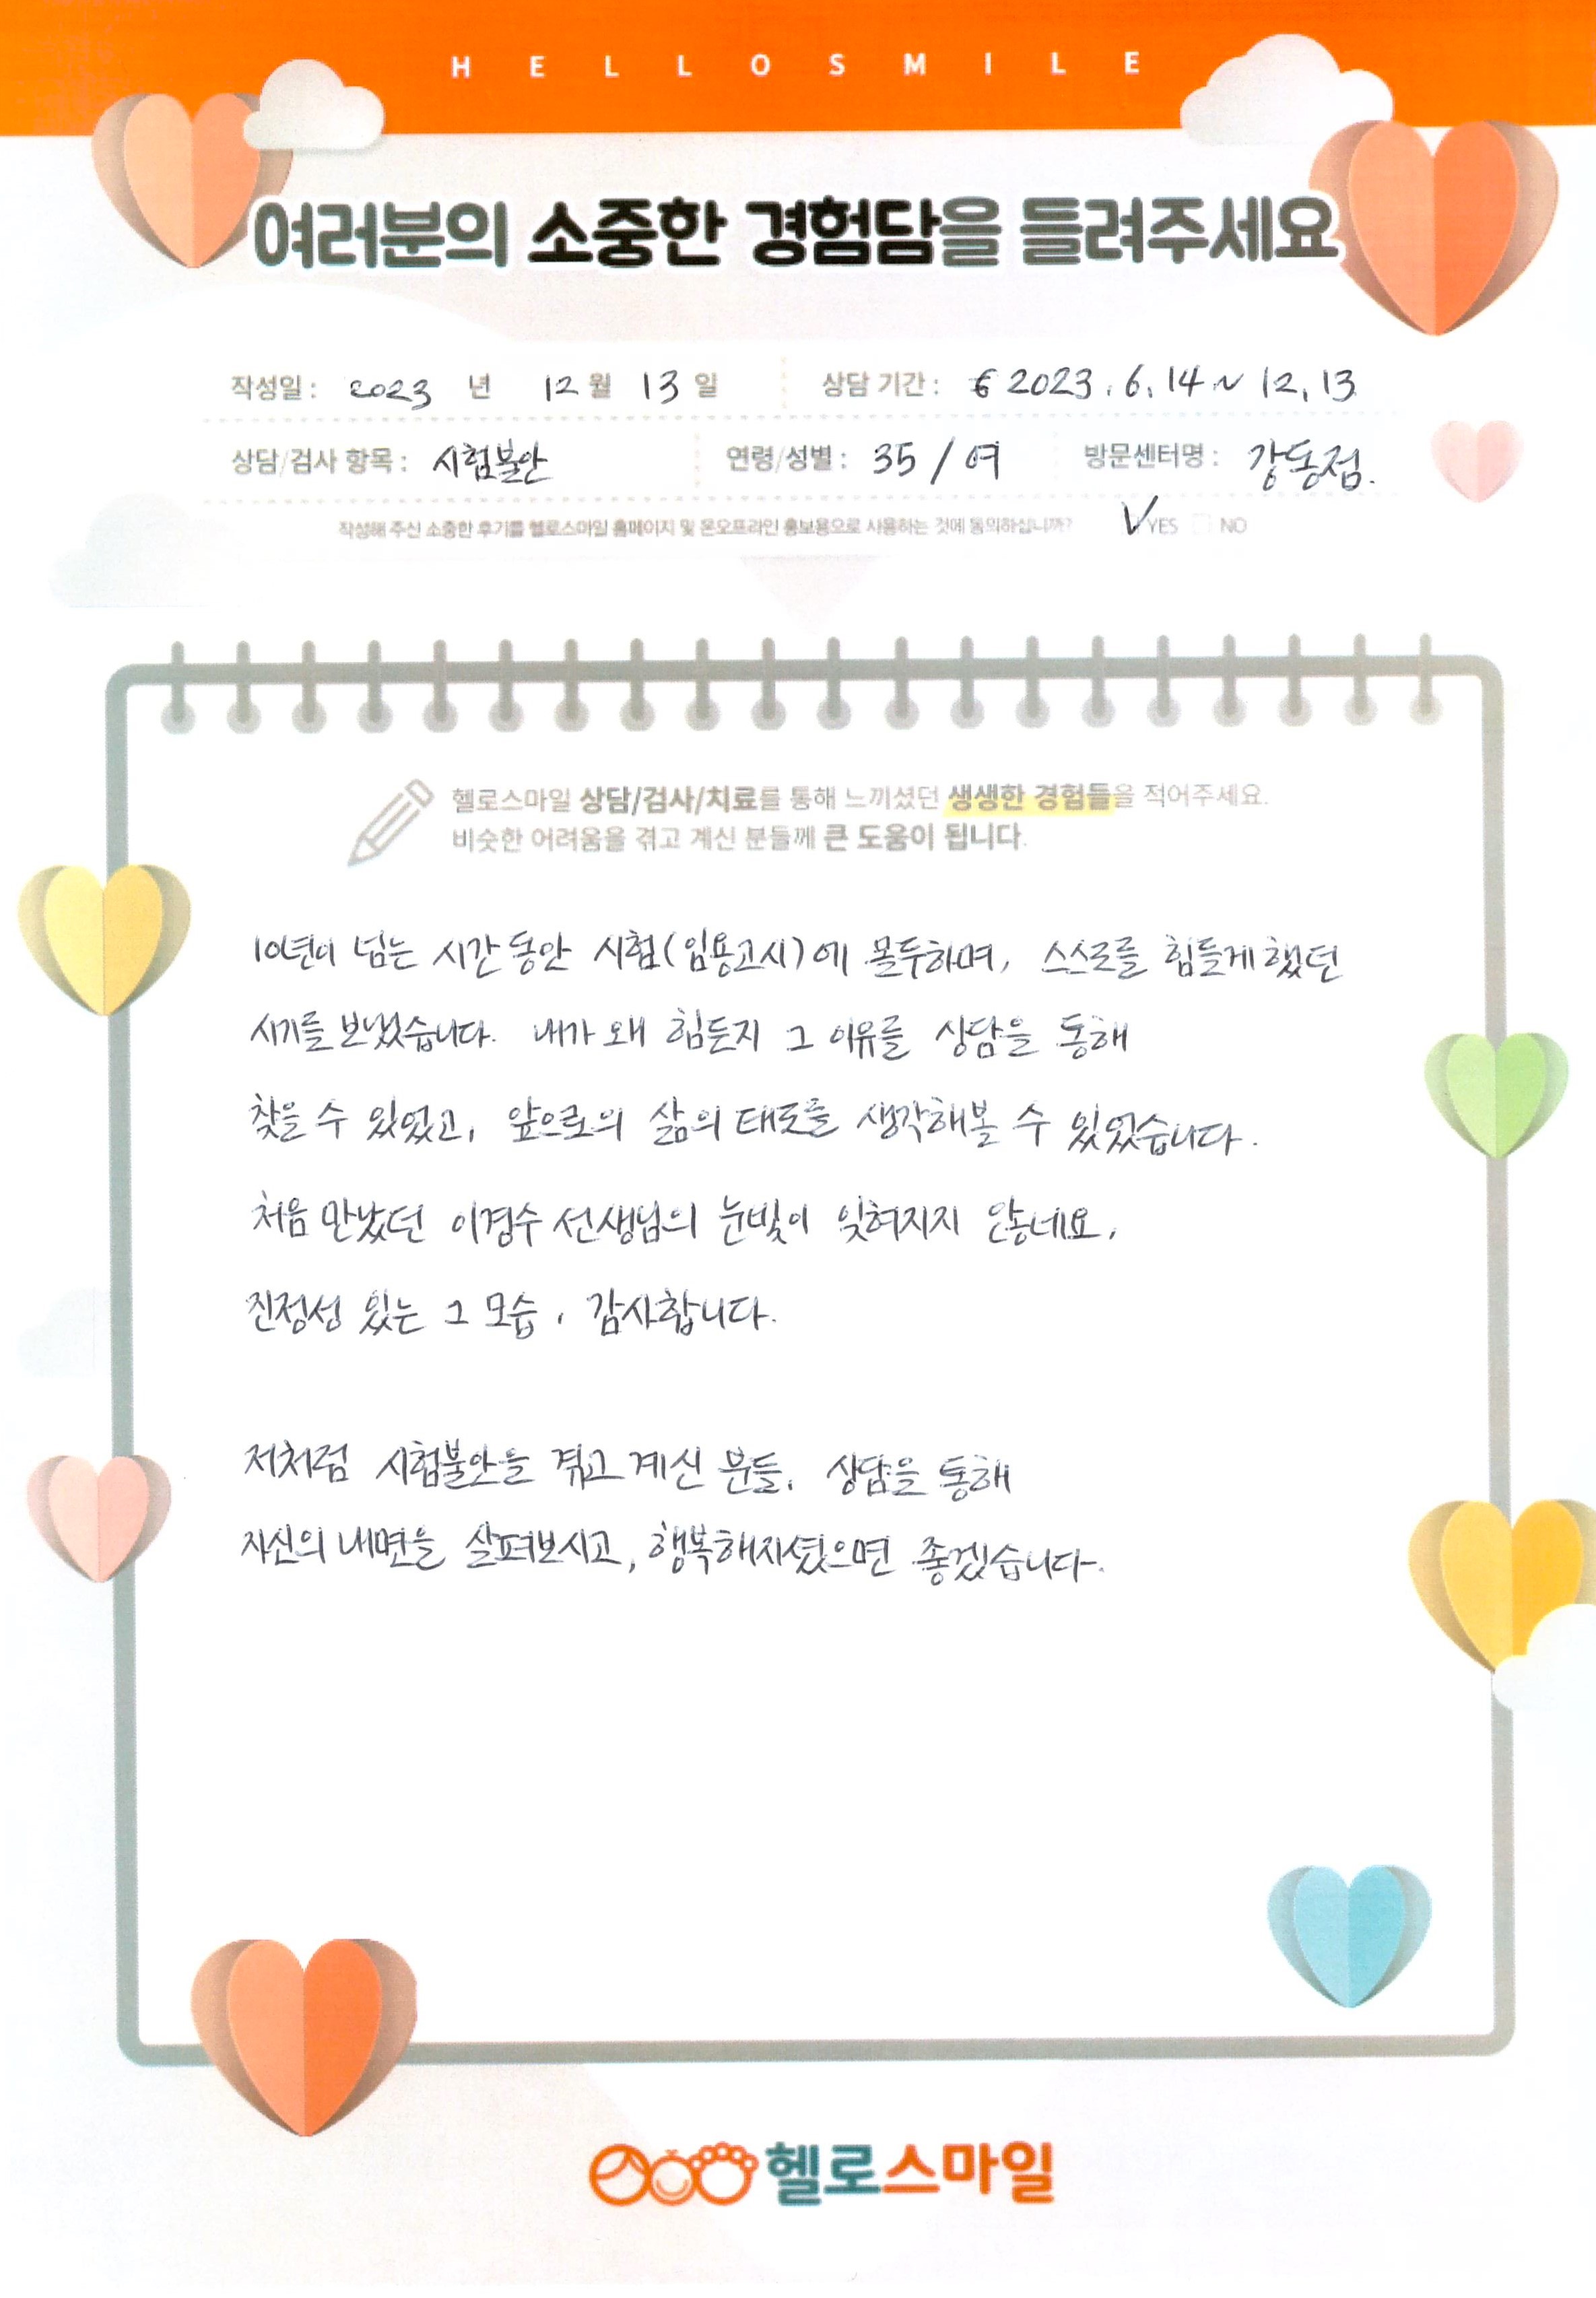 HELLOSMILE
여러분의 소중한 경험담을 들려주세요
작성일 : 2023 년 12 월 13 일 상담 기간 : 2023. 6. 14 ~ 12. 13
상담/검사 항목 : 시험불안 연령/성별 : 35 / 여 방문센터명 : 강동점.
작성해 주신 소중한 후기를 헬로스마일 홈페이지 및 온오프라인 홍보용으로 사용하는 것에 동의하십니까? ✓YES □ NO
헬로스마일 상담/검사/치료를 통해 느끼셨던 생생한 경험들을 적어주세요.
비슷한 어려움을 겪고 계신 분들께 큰 도움이 됩니다.
10년이 넘는 시간동안 시험(임용고시)에 몰두하며, 스스로를 힘들게 했던
시기를 보냈습니다. 내가 왜 힘든지 그 이유를 상담을 통해
찾을 수 있었고, 앞으로의 삶의 태도를 생각해볼 수 있었습니다.
처음 만났던 이경수 선생님의 눈빛이 잊혀지지 않네요.
진정성 있는 그 모습, 감사합니다.
저처럼 시험불안을 겪고 계신 분들, 상담을 통해
자신의 내면을 살펴보시고, 행복해지셨으면 좋겠습니다.
헬로스마일